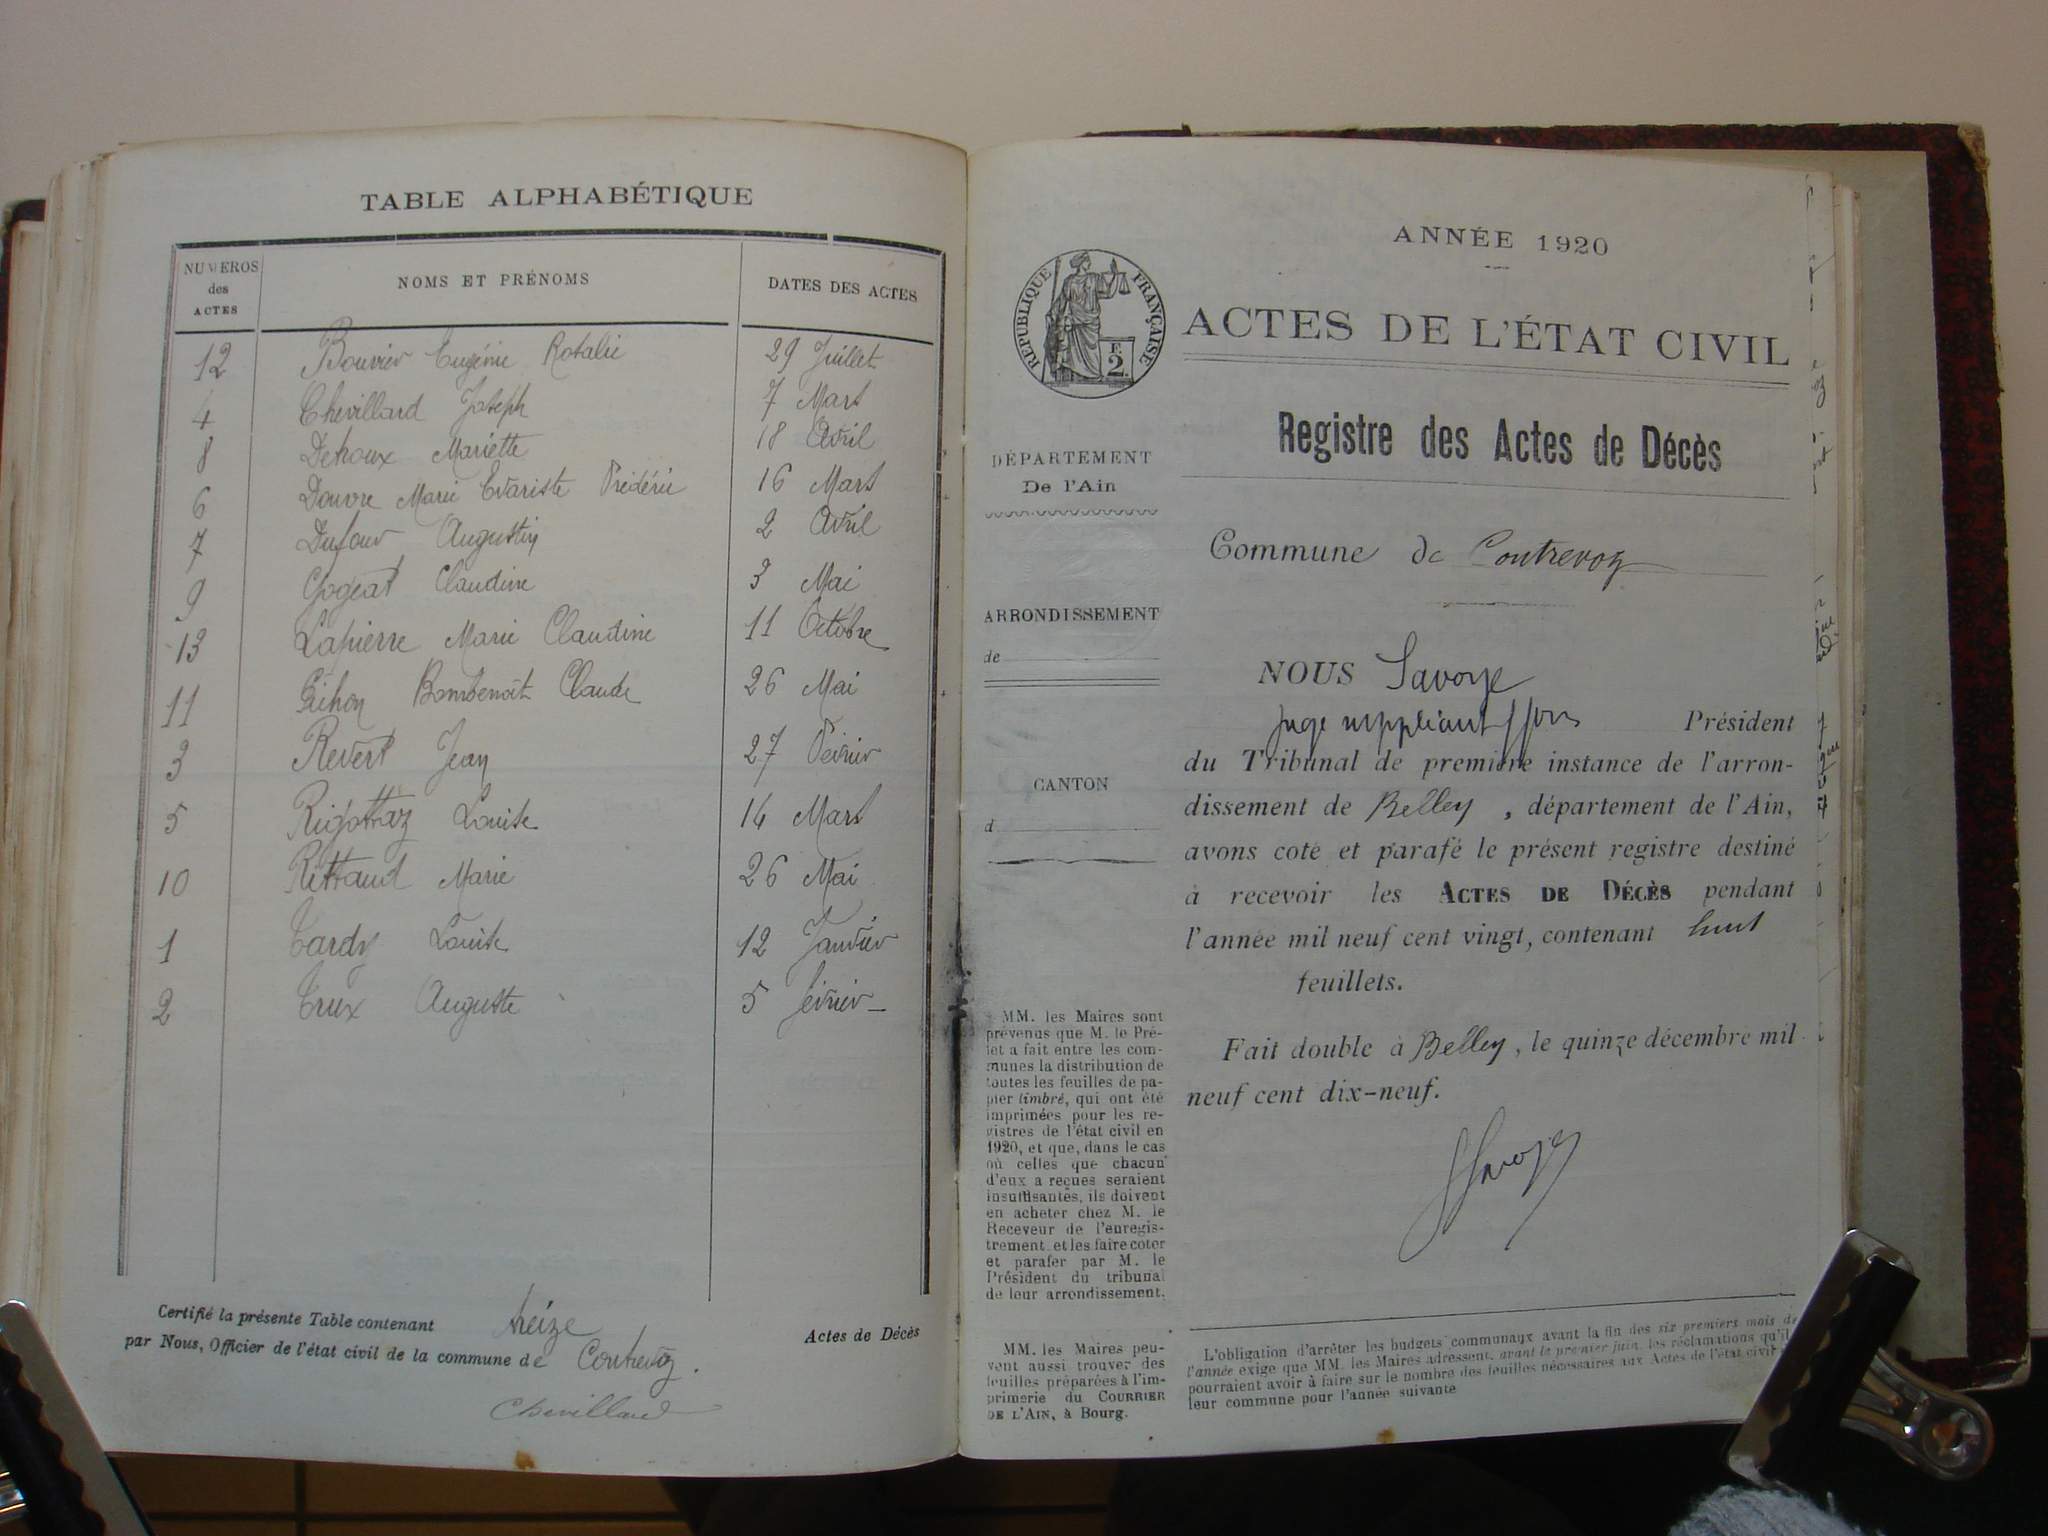 TABLE ALPHABÉTIQUE
NUMEROS des ACTES
NOMS ET PRÉNOMS
DATES DES ACTES
12 Bouvier Eugénie Rosalie 29 Juillet
4 Chevillard Joseph 7 Mars
8 Dehoux Mariette 18 Avril
6 Douvre Marie Evariste Frédéric 16 Mars
7 Dufour Augustin 2 Avril
9 Gogeat Claudine 3 Mai
13 Lapierre Marie Claudine 11 Octobre
11 Claude 26 Mai
3 Revert Jean 27 Février
5 Rigottaz Louise 14 Mars
10 Marie 26 Mai
1 Tardy Louise 12 Janvier
2 Trux Auguste 5 février
Certifié la présente Table contenant treize Actes de Décès
par Nous, Officier de l'état civil de la commune de Contrevoz.
Chevillard
ANNÉE 1920
RÉPUBLIQUE FRANÇAISE
F.
2.
ACTES DE L'ÉTAT CIVIL
Registre des Actes de Décès
DÉPARTEMENT
De l'Ain
Commune de Contrevoz
ARRONDISSEMENT
de
CANTON
d
NOUS Savoye
Juge suppléant Président
du Tribunal de première instance de l'arron-
dissement de Belley, département de l'Ain,
avons coté et parafé le présent registre destiné
à recevoir les ACTES DE DÉCÈS pendant
l'année mil neuf cent vingt, contenant huit
feuillets.
Fait double à Belley, le quinze décembre mil
neuf cent dix-neuf.
Savoye
MM. les Maires sont
prévenus que M. le Pré-
fet a fait entre les com-
munes la distribution de
toutes les feuilles de pa-
pier timbré, qui ont été
imprimées pour les re-
gistres de l'état civil en
1920, et que, dans le cas
où celles que chacun
d'eux a reçues seraient
insuffisantes, ils doivent
en acheter chez M. le
Receveur de l'enregis-
trement et les faire coter
et parafer par M. le
Président du tribunal
de leur arrondissement.
MM. les Maires peu-
vent aussi trouver des
feuilles préparées à l'im-
primerie du COURRIER
DE L'AIN, à Bourg.
L'obligation d'arrêter les budgets communaux avant la fin des six premiers mois de
l'année exige que MM. les Maires adressent, avant le premier juin, les réclamations qu'il
pourraient avoir à faire sur le nombre des feuilles nécessaires aux Actes de l'état civil
leur commune pour l'année suivante